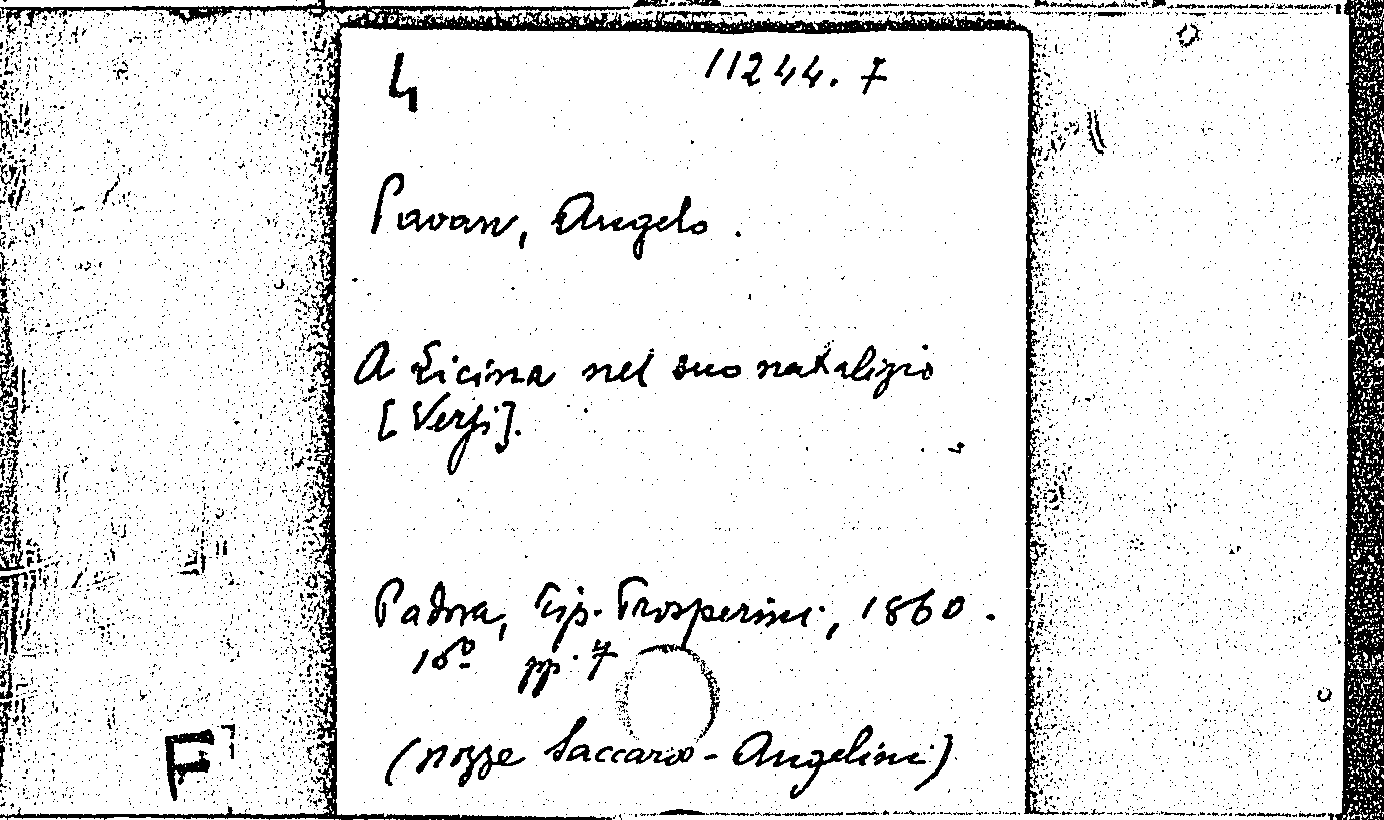 4 11244. 7
Pavan, Angelo.
A Licina nel suo natalizio
[Versi].
Padova, Tip. Prosperini, 1860.
16º pp. 7
(nozze Saccardo - Angelini)
F